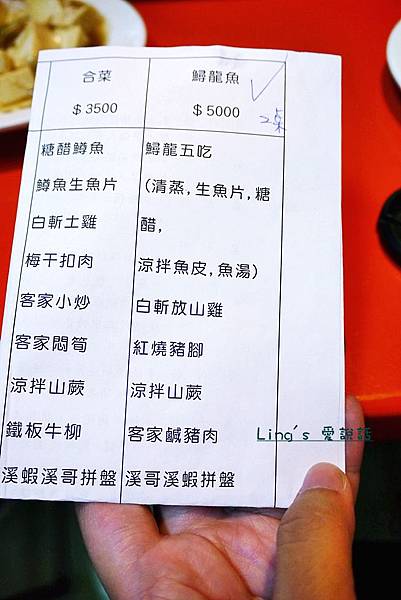 合菜
$3500
糖醋鱒魚
鱒魚生魚片
白斬土雞
梅干扣肉
客家小炒
客家悶筍
涼拌山蕨
鐵板牛柳
溪蝦溪哥拼盤
鱘龍魚
$5000
2桌
鱘龍五吃
(清蒸,生魚片,糖
醋,
涼拌魚皮,魚湯)
白斬放山雞
紅燒豬腳
涼拌山蕨
客家鹹豬肉
溪哥溪蝦拼盤
Ling's 愛說話